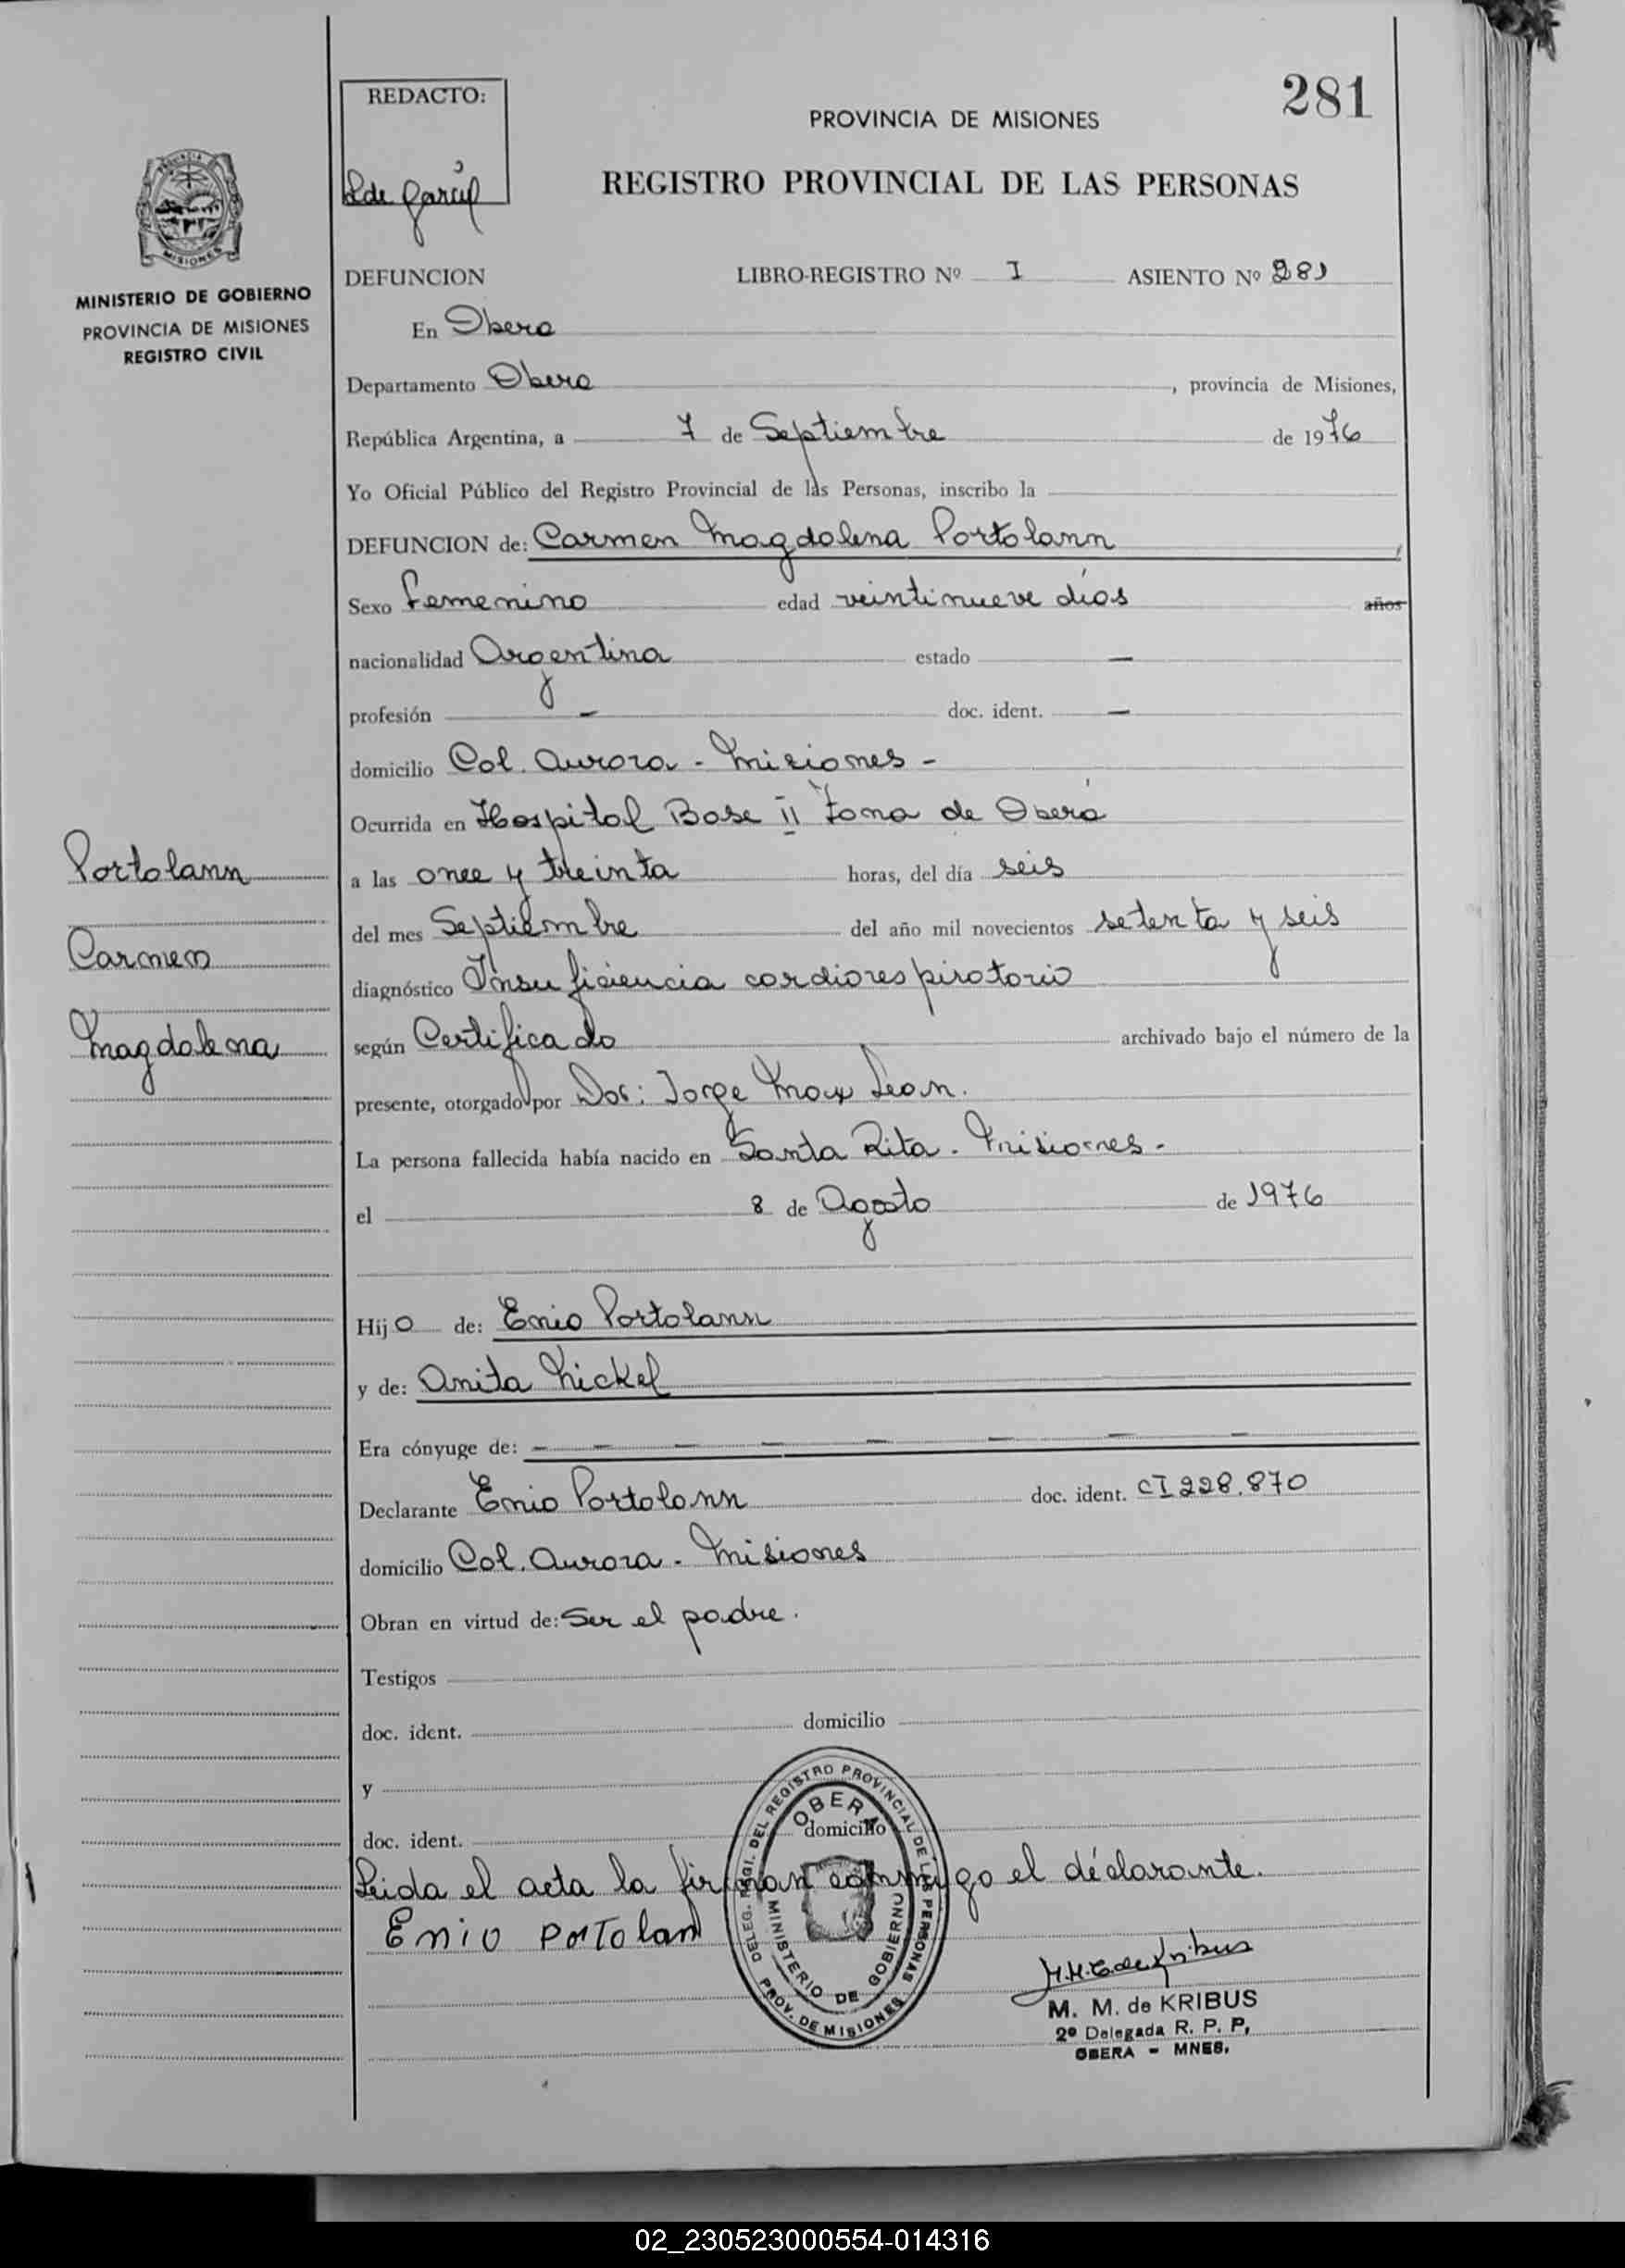 281
REDACTO:
PROVINCIA DE MISIONES
REGISTRO PROVINCIAL DE LAS PERSONAS
MINISTERIO DE GOBIERNO
PROVINCIA DE MISIONES
REGISTRO CIVIL
DEFUNCION LIBRO-REGISTRO Nº I ASIENTO Nº 281
En Obera
Departamento Obera, provincia de Misiones,
República Argentina, a 7 de Septiembre de 1976
Yo Oficial Público del Registro Provincial de las Personas, inscribo la
DEFUNCION de: Carmen Magdalena Portolann
Sexo Femenino edad veintinueve días años
nacionalidad Argentina estado —
profesión — doc. ident. —
domicilio Col. Aurora - Misiones -
Ocurrida en Hospital Base II Zona de Oberá
a las once y treinta horas, del día seis
del mes Septiembre del año mil novecientos setenta y seis
diagnóstico Insuficiencia cardiorespiratorio
según Certificado archivado bajo el número de la
presente, otorgado por Dor: Jorge Max Lean.
La persona fallecida había nacido en Santa Rita - Misiones -
el 8 de Agosto de 1976
Portolann
Carmen
Magdalena
Hija de: Enio Portolann
y de: Anita Nickel
Era cónyuge de: — — — — — — — —
Declarante Enio Portolann doc. ident. CI 228.870
domicilio Col. Aurora - Misiones
Obran en virtud de: Ser el padre.
Testigos
doc. ident. domicilio
y
doc. ident. domicilio
Leida el acta la firman conmigo el déclarante.
Enio Portolan
DELEG. REGI. DEL REGISTRO PROVINCIAL DE LAS PERSONAS
OBERA
MINISTERIO DE GOBIERNO
PROV. DE MISIONES
M. M. de KRIBUS
2º Delegada R. P. P,
OBERA - MNES.
02_230523000554-014316